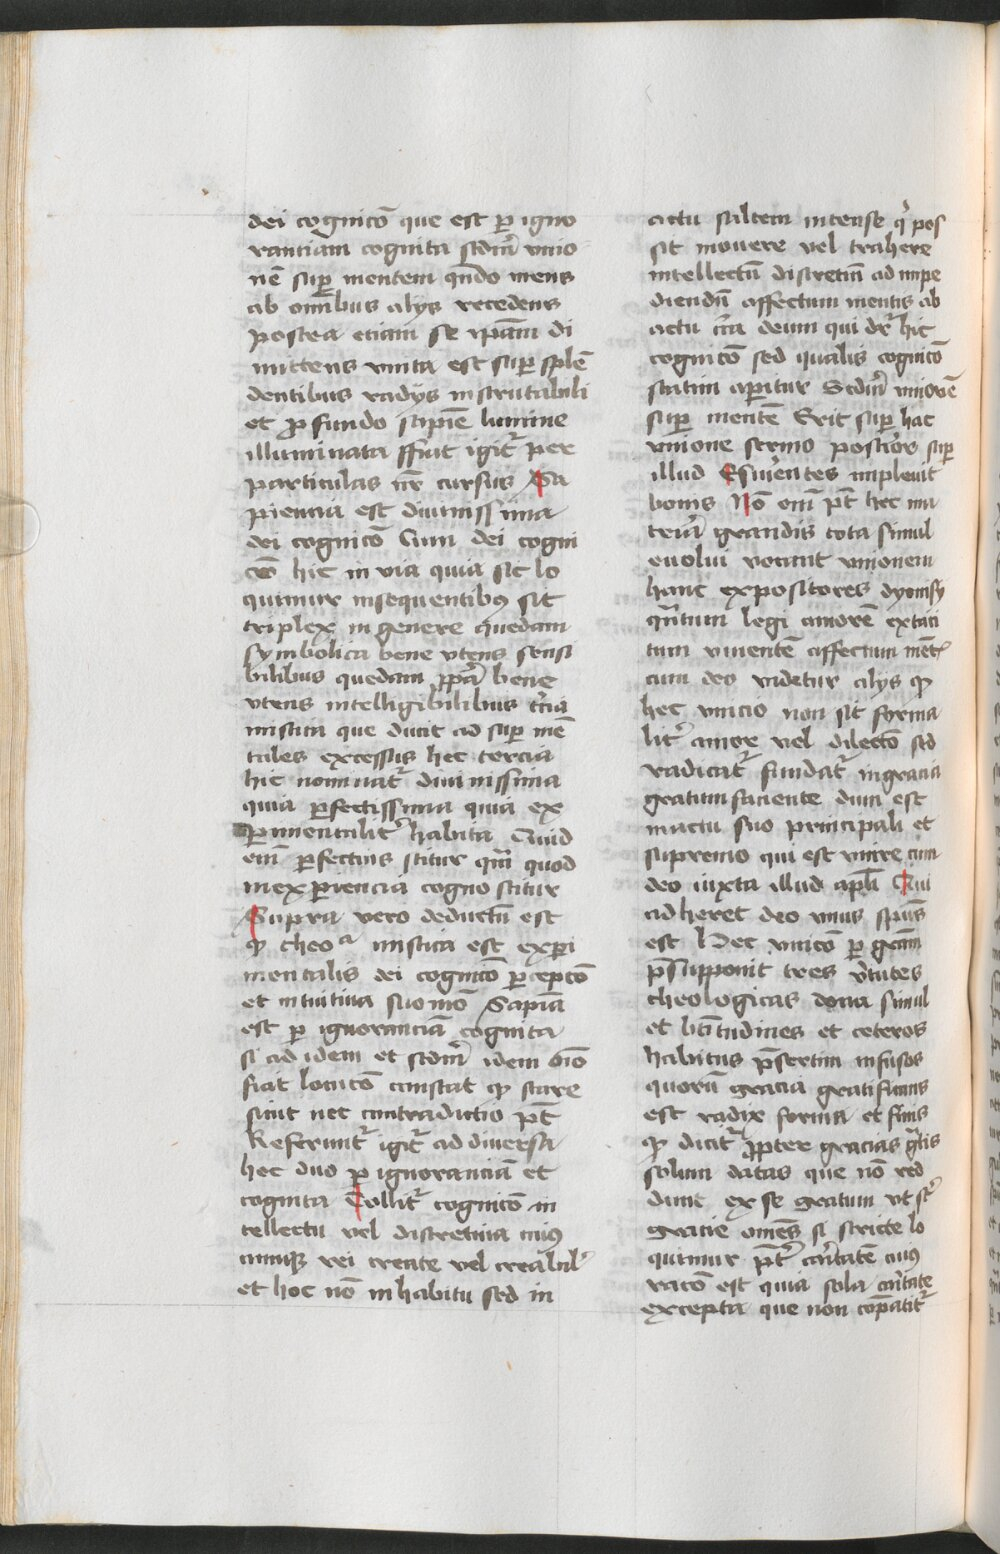 dei cognicō que est ꝑ igno
rantiam cognita scdm̄ vnio
nē suꝑ mentem qn̄do mens
ab omībus alijs recedens
postea etiam se ip̄am di
mittens vnita est suꝑ splē
dentibus radijs instrutabili
et ꝓfundo sapiē lumine
illuminata ffiat igit᷑ per
particulas nr̄ cursus Sa
piencia est diuinissima
dei cognicō Cum dei cogni
cō hic in via quia sic lo
quimur insequentibꝰ sit
triplex in genere quedam
symbolica bene vtens sensi
bilibus quedam ꝓpͥa bene
vtens intelligibilibus tͨia
mistica que ducit ad suꝑ mē
tales excessus hec tercia
hic nominat᷑ diuinissima
quia ꝑfectissima quia ex
ꝑimentalit᷑ habita Quid
em̄ ꝑfectius scitur qm̄ quod
in exꝑiencia cognoscitur
Supra vero deductū est
ꝙ theoᵃ mistica est exꝑi
mentalis dei cognicō ꝑcepcō
et intuitiua suo mō Sapiā
est ꝑ ignoranciā cognita
si ad idem et scdm̄ idem
fiat locucō constat ꝙ stare
sinit nec contradictio pt̄
Referunt᷑ igit᷑ ad diuersa
hec duo ꝑ ignoranciā et
cognita Tollit᷑ cognicō in
tellectu vel discretiua
cumqꝫ rei create vel creabil᷑
et hoc nō in habitu sed in
actu saltem intense qͥ pos
sit mouere vel trahere
intellectū discretiū ad impe
diendū affectum mentis ab
actu cͥca deum qui dr̄ hic
cognicō sed qualis cognicō
statim aperitur Scdm̄ vnionē
suꝑ mentē Erit suꝑ hac
vnione sermo posterior suꝑ
illud Esurientes impleuit
bonis Nō em̄ pt̄ hec ma
teria grandis tota simul
euolui vocant vnionem
hanc expositores dyonisy
qͣntum legi amorē extati
tum vnientē affectum ment᷑
cum deo videtur alijs ꝙ
hec vnicio non sit forma
lit᷑ amor vel dilectō sed
radicat᷑ fundat᷑ in gracia
gratum faciente dum est
in actu suo principali et
supremo qui est vnire cum
deo iuxta illud apl̄i Qui
adheret deo vnus sps̄
est Hec vnicō ꝑ grām
p̄supponit tres vͥtutes
theologicas dona simul
et btītudines et ceteros
habitus p̄sertim infusos
quorū gracia gratificans
est radix forma et finis
ꝙ dicit᷑ ꝓpter gracias gͣtis
solum datas que nō red
dunt ex se gratum vt st᷑
gracie omēs si stricte lo
quimur p̄t᷑ caritatē cuiꝰ
racō est quia sola caritate
excepta que non cōpatit᷑